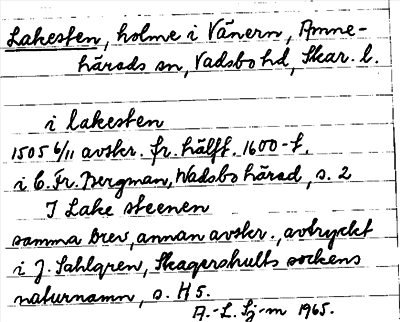 Lakesten, holme i Vänern, Amne-
härads sn, Vadsbo hd, Skar. l.
i lakesten
1505 6/11 avskr. fr. hälft. 1600-t.
i C. Fr. Bergman, Wadsbo härad, s. 2
I Lake steenen
samma brev, annan avskr., avtryckt
i J. Sahlgren, Skagershults sockens
naturnamn, s. H5.
A.-L. Sj-m 1965.